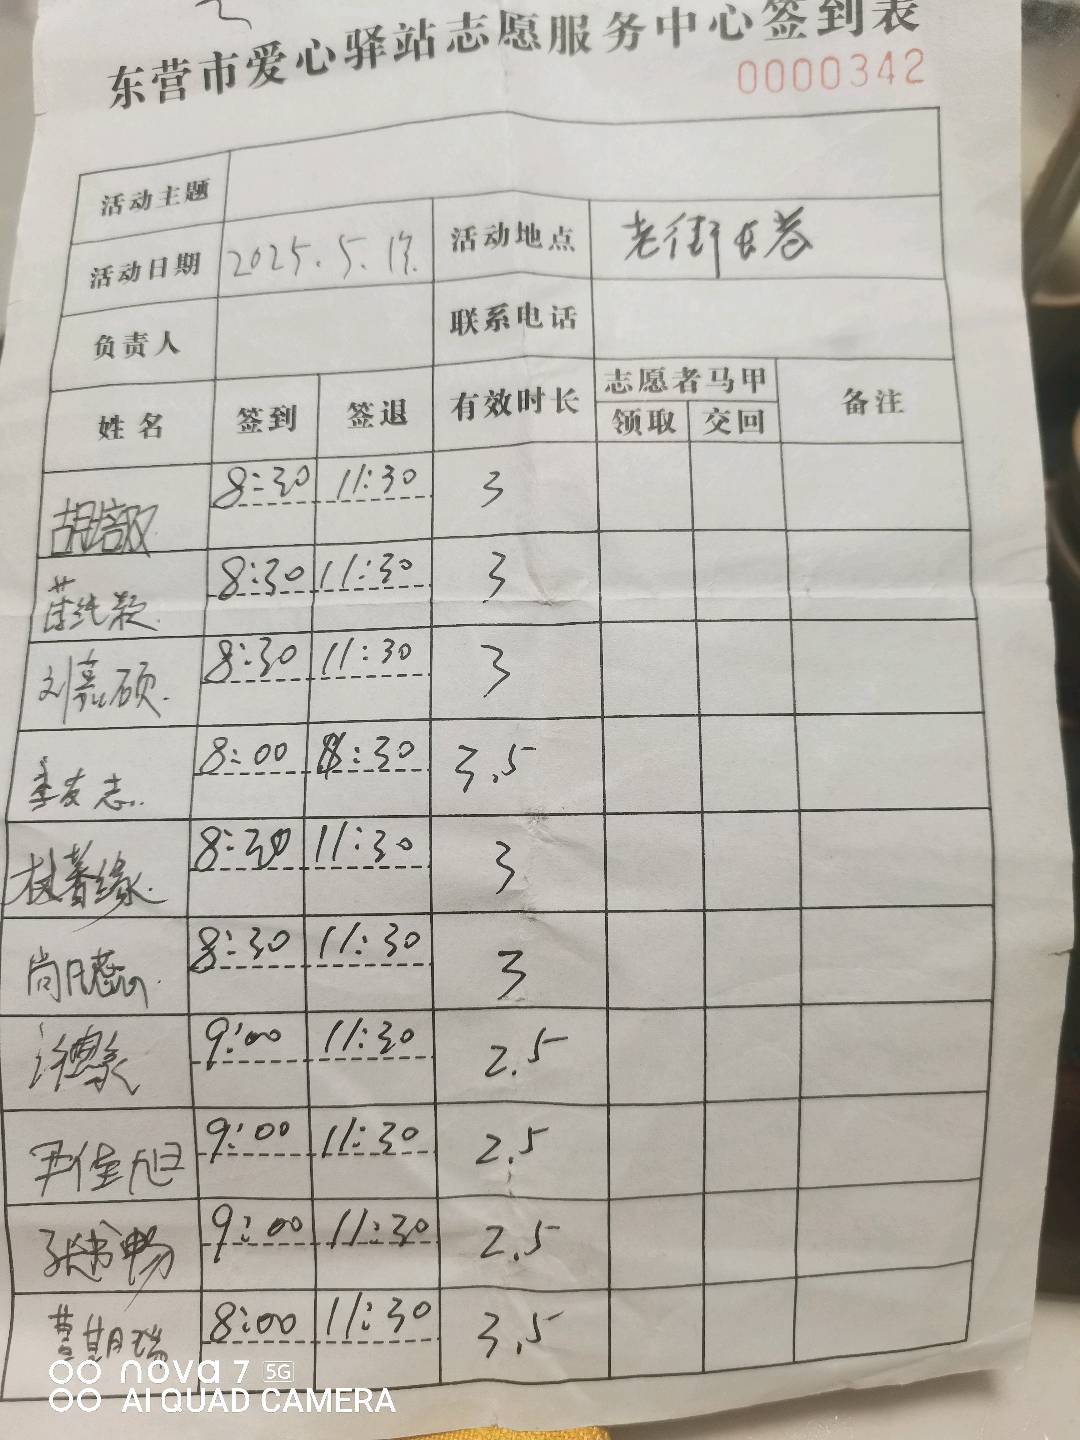 东营市爱心驿站志愿服务中心签到表
0000342
活动主题
活动日期 2025.5.17. 活动地点 老街长巷
负责人 联系电话
姓名 签到 签退 有效时长 志愿者马甲 备注
领取 交回
8:30 11:30 3
8:30 11:30 3
刘嘉硕. 8:30 11:30 3
季友志. 8:00 11:30 3.5
8:30 11:30 3
8:30 11:30 3
9:00 11:30 2.5
尹佳旭 9:00 11:30 2.5
张书畅 9:00 11:30 2.5
曹其瑞 8:00 11:30 3.5
nova 7 5G
AI QUAD CAMERA